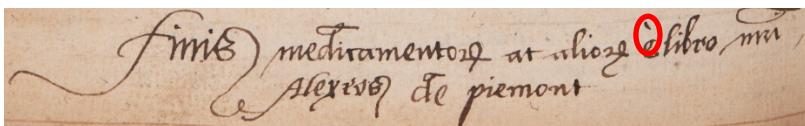 Finis medicamentorꝝ at aliorꝝ è libro mri
Alexeos de piemont